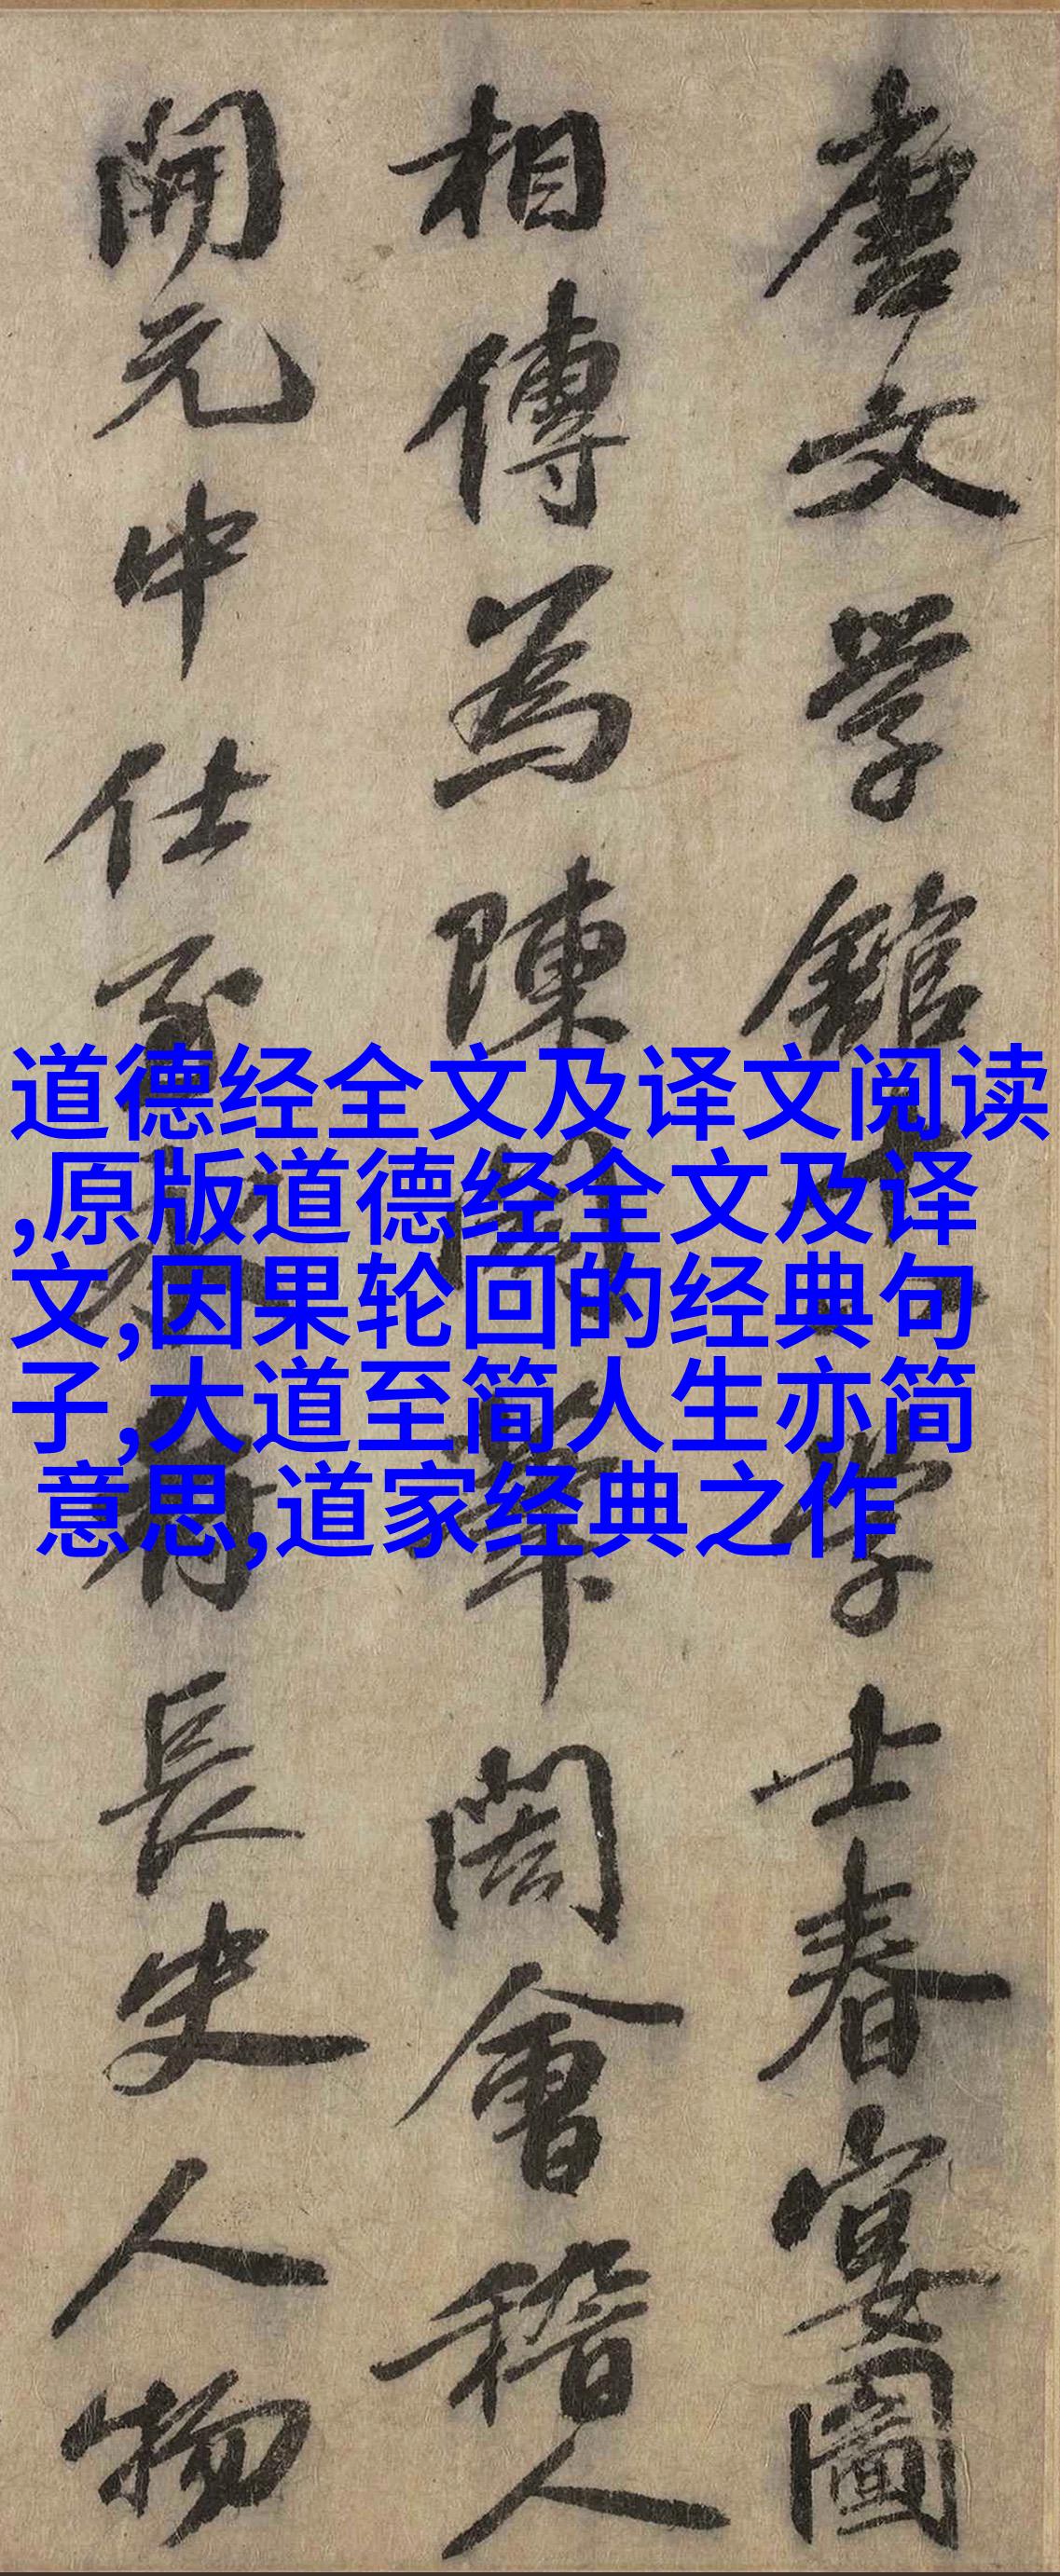 唐文学館學士春宴圖
相傳為陳閎筆閎會稽人
開元中仕至長史人物
道德经全文及译文阅读
,原版道德经全文及译
文,因果轮回的经典句
子,大道至简人生亦简
意思,道家经典之作